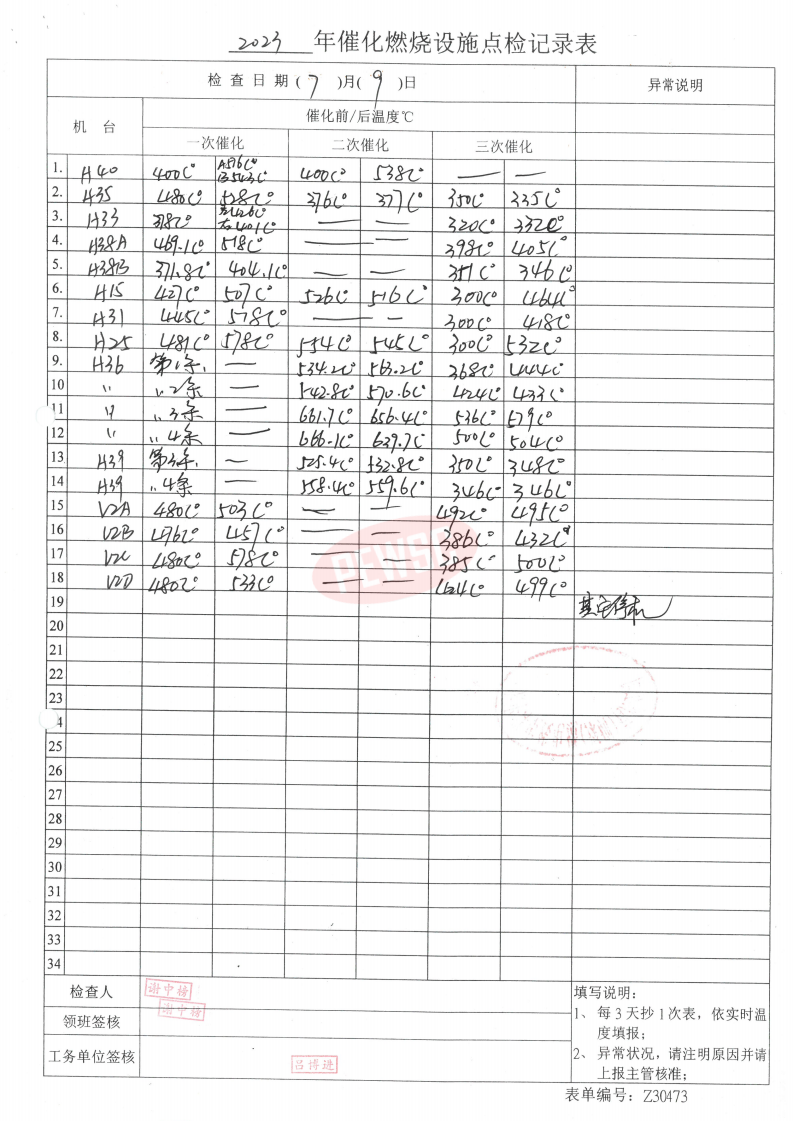 2023 年催化燃烧设施点检记录表
检 查 日 期 ( 7 )月( 9 )日 异常说明
机 台 催化前/后温度℃
一次催化 二次催化 三次催化
1. H40 400C° A516C° B543C° 400C° 538C° — —
2. H35 480C° 528C° 376C° 377C° 350C° 335C°
3. H33 378C° 左426C° 右401C° — — 320C° 332C°
4. H38A 469.1C° 518C° — — 398C° 405C°
5. H38B 371.8C° 404.1C° — — 351C° 346C°
6. H15 427C° 507C° 526C° 516C° 300C° 464C°
7. H31 445C° 578C° — — 300C° 418C°
8. H25 481C° 578C° 554C° 545C° 300C° 532C°
9. H36 第1条 — 534.2C° 563.2C° 368C° 444C°
10 〃 〃2条 — 542.8C° 570.6C° 424C° 433C°
11 〃 〃3条 — 661.7C° 656.4C° 536C° 579C°
12 〃 〃4条 — 666.1C° 639.7C° 500C° 504C°
13 H39 第3条 — 525.4C° 532.8C° 350C° 348C°
14 H39 〃4条 — 558.4C° 559.6C° 346C° 346C°
15 V2A 480C° 503C° — — 492C° 495C°
16 V2B 476C° 457C° — — 386C° 432C°
17 V2C 480C° 578C° — — 385C° 500C°
18 V2D 480C° 533C° — — 424C° 499C°
PEWSC
19 其它停机
20
21
22
23
4
25
26
27
28
29
30
31
32
33
34
检查人 谢中榜
领班签核 谢中榜
工务单位签核 吕博进
填写说明:
1、每3天抄1次表，依实时温
度填报;
2、异常状况，请注明原因并请
上报主管核准;
表单编号: Z30473